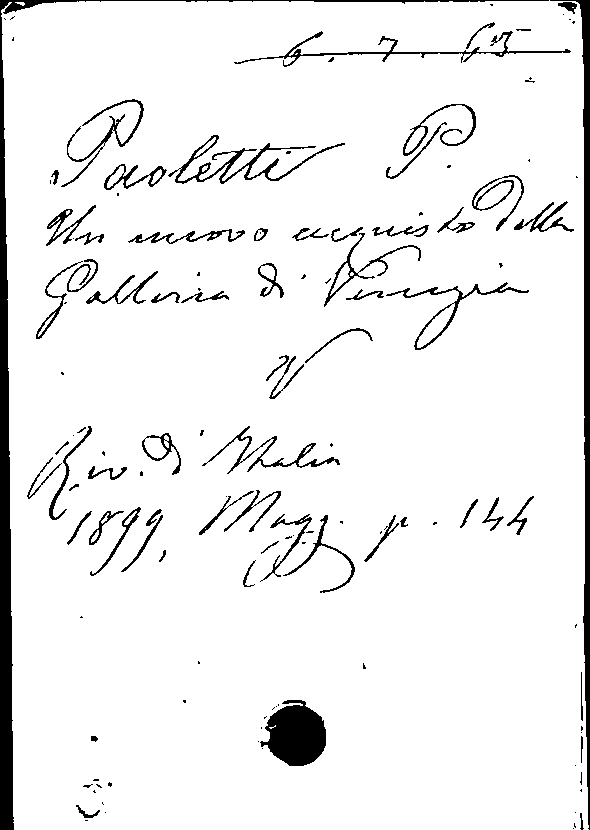 6.7.65
Paoletti P.
Un nuovo acquisto della
Galleria di Venezia
V
Riv. d'Italia
1899, Magg. p. 144